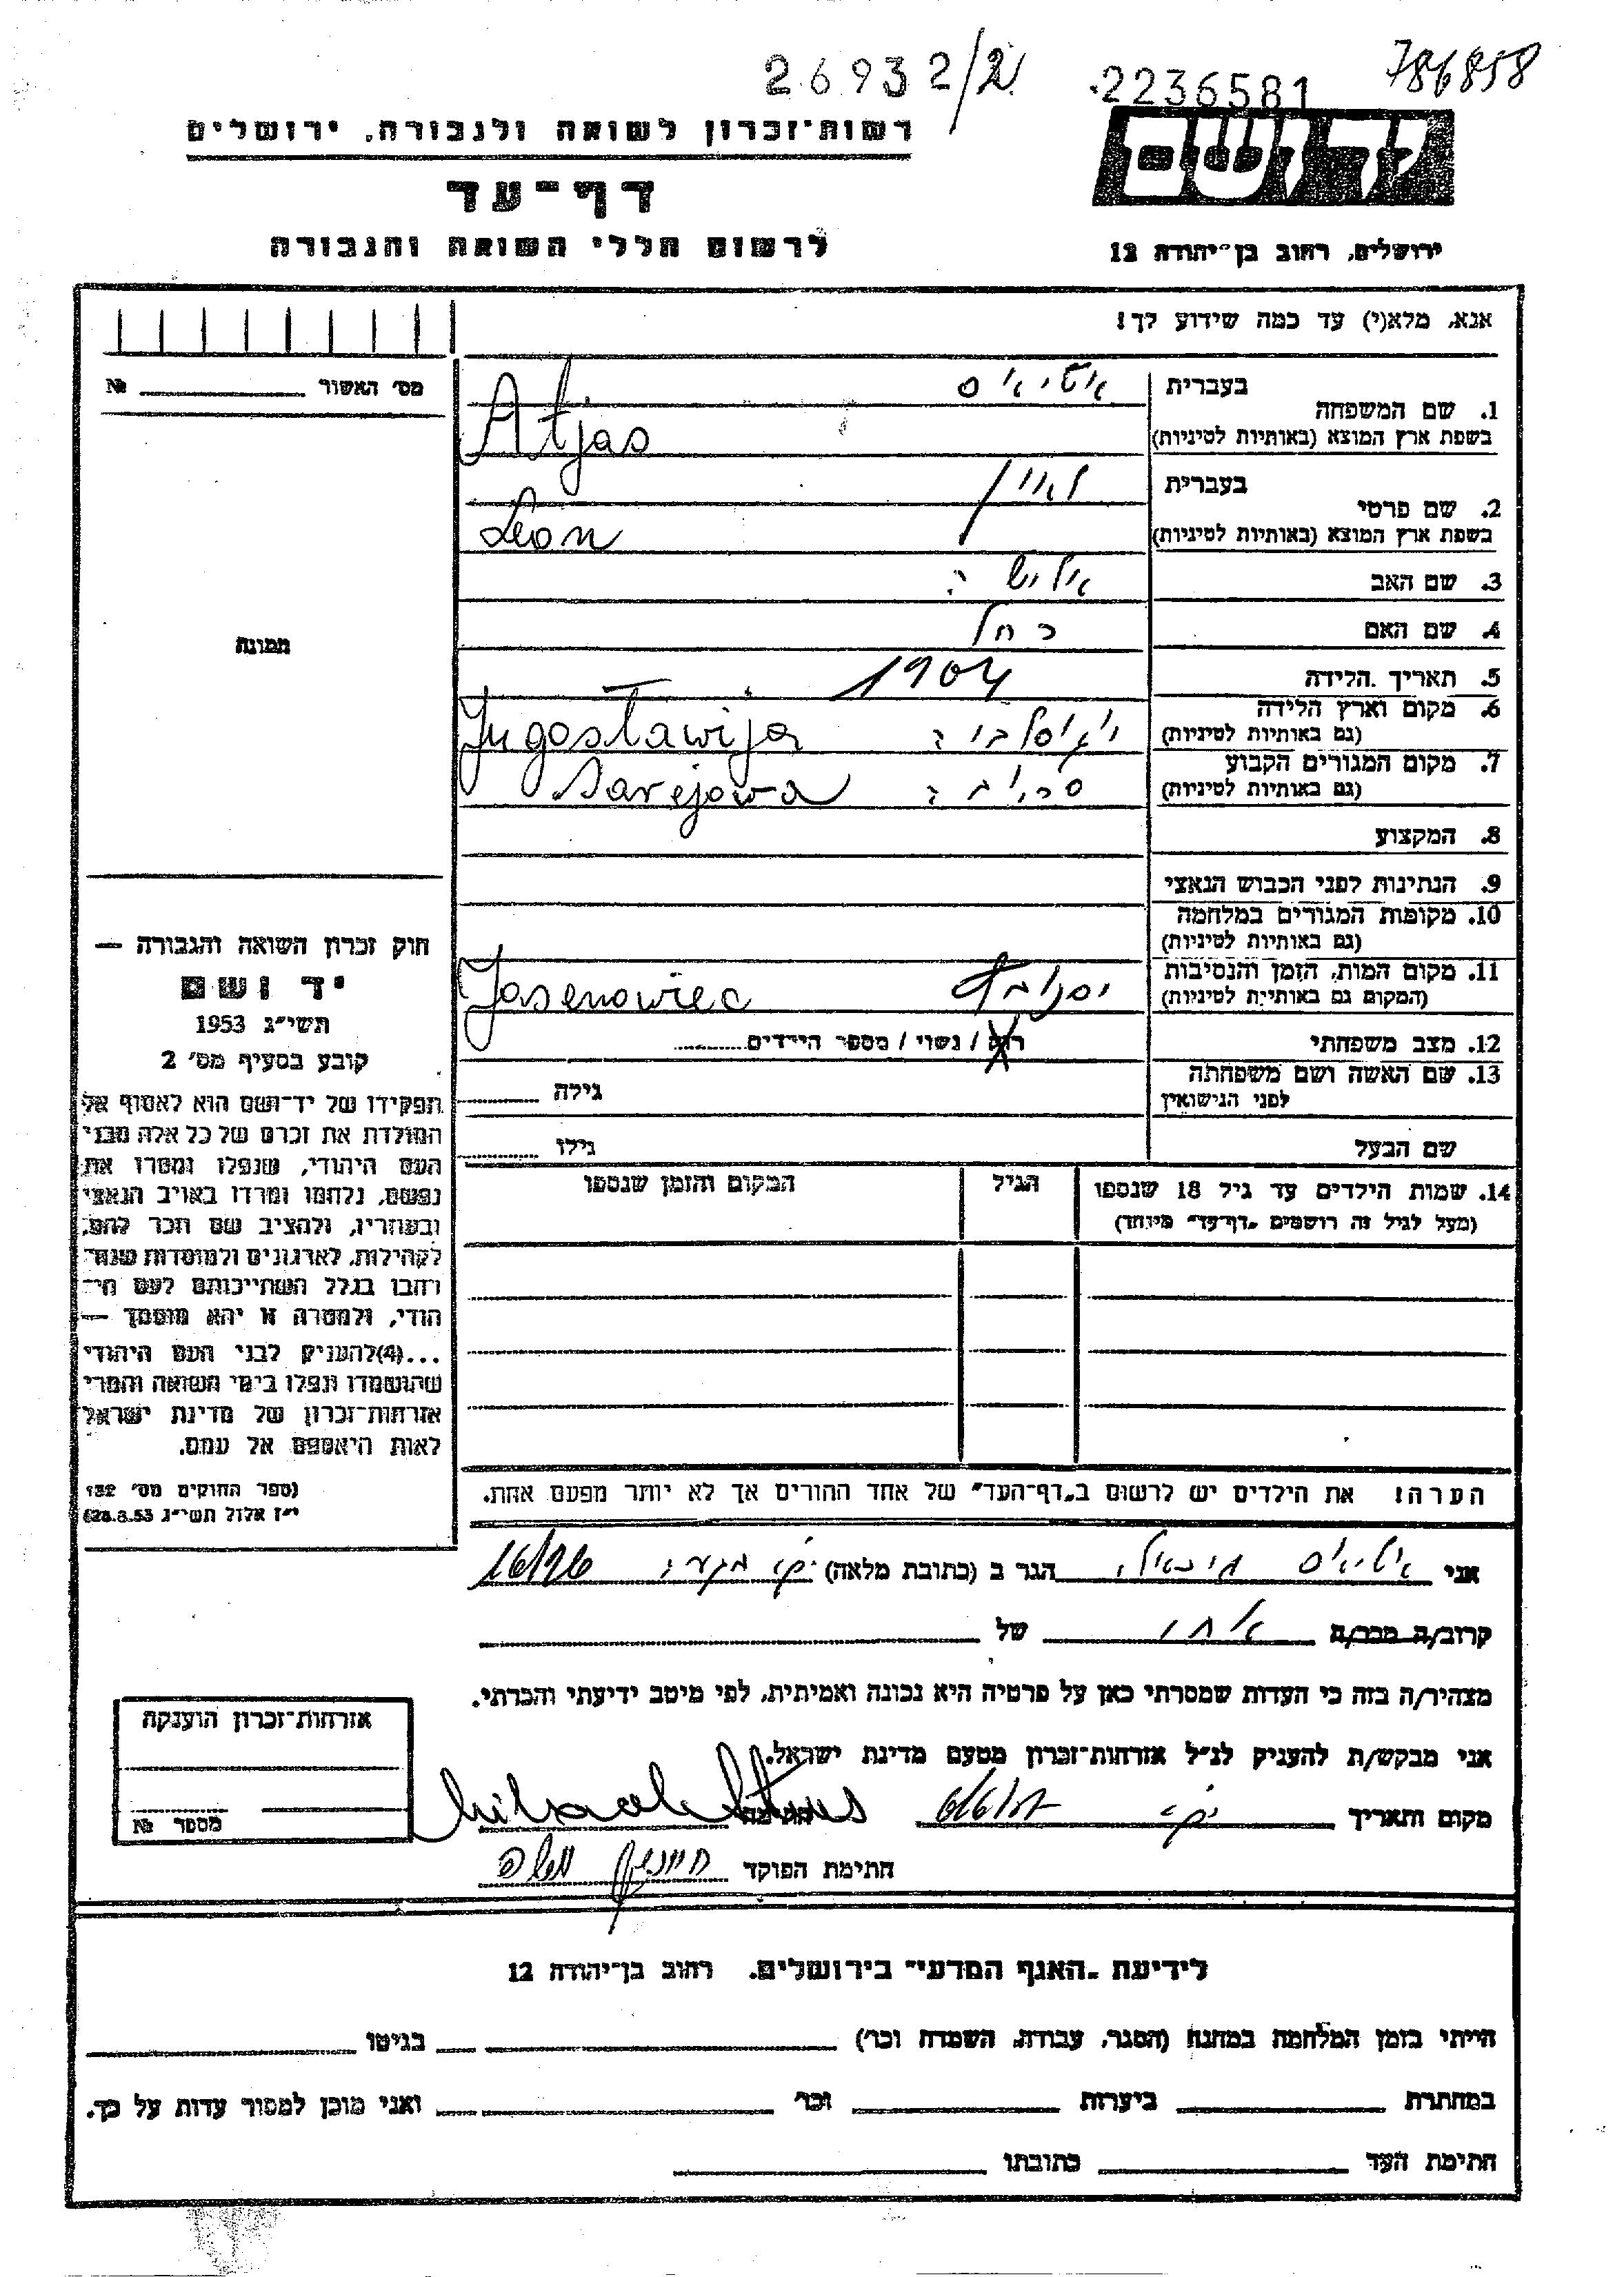 26932/2 2236581 786858
ידושם
רשות־זכרון לשואה ולגבורה, ירושלים
דף־עד
לרשום חללי השואה והגבורה
ירושלים, רחוב בן־יהודה 12
אנא, מלא(י) עד כמה שידוע לך!
מס׳ האשור № ________
בעברית אטיאס
1. שם המשפחה
בשפת ארץ המוצא (באותיות לטיניות) Atjas
בעברית לאון
2. שם פרטי
בשפת ארץ המוצא (באותיות לטיניות) Leon
3. שם האב
4. שם האם רחל
5. תאריך הלידה 1904
6. מקום וארץ הלידה
(גם באותיות לטיניות) Jugosławija
7. מקום המגורים הקבוע
(גם באותיות לטיניות) Sarejowa
8. המקצוע
9. הנתינות לפני הכבוש הנאצי
10. מקומות המגורים במלחמה
(גם באותיות לטיניות)
11. מקום המות, הזמן והנסיבות
(המקום גם באותיות לטיניות) Jasenowiec
12. מצב משפחתי רוק / נשוי / מספר הילדים
13. שם האשה ושם משפחתה
לפני הנישואין גילה
שם הבעל גילו
14. שמות הילדים עד גיל 18 שנספו הגיל המקום והזמן שנספו
(מעל לגיל זה רושמים „דף־עד" מיוחד)
תמונה
חוק זכרון השואה והגבורה —
יד ושם
תשי״ג 1953
קובע בסעיף מס׳ 2
תפקידו של יד־ושם הוא לאסוף אל
המולדת את זכרם של כל אלה מבני
העם היהודי, שנפלו ומסרו את
נפשם, נלחמו ומרדו באויב הנאצי
ובעוזריו, ולהציב שם וזכר להם,
לקהילות, לארגונים ולמוסדות שנח־
רבו בגלל השתייכותם לעם הי־
הודי, ולמטרה זו יהא מוסמך —
...(4) להעניק לבני העם היהודי
שהושמדו ונפלו בימי השואה והמרי
אזרחות־זכרון של מדינת ישראל
לאות היאספם אל עמם.
(ספר החוקים מס׳ 132
י״ז אלול תשי״ג 28.8.53)
הערה! את הילדים יש לרשום ב„דף־העד" של אחד ההורים אך לא יותר מפעם אחת.
אני אטיאס מיכאל הגר ב (כתובת מלאה)
קרוב/ה מכר/ה אחי של
מצהיר/ה בזה כי העדות שמסרתי כאן על פרטיה היא נכונה ואמיתית, לפי מיטב ידיעתי והכרתי.
אני מבקש/ת להעניק לנ״ל אזרחות־זכרון מטעם מדינת ישראל.
מקום ותאריך חתימה
חתימת הפוקד
אזרחות־זכרון הוענקה
מספר №
לידיעת „האגף המדעי" בירושלים, רחוב בן־יהודה 12
הייתי בזמן המלחמה במחנה (הסגר, עבודה, השמדה וכו׳) בגיטו
במחתרת ביערות וכו׳ ואני מוכן למסור עדות על כך.
חתימת העד כתובתו